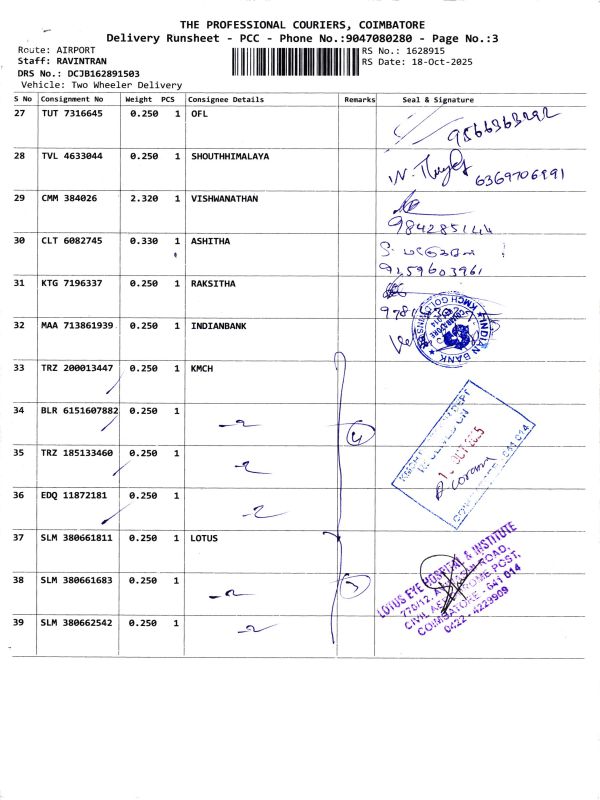 THE PROFESSIONAL COURIERS, COIMBATORE
Delivery Runsheet - PCC - Phone No.:9047080280 - Page No.:3
Route: AIRPORT RS No.: 1628915
Staff: RAVINTRAN RS Date: 18-Oct-2025
DRS No.: DCJB162891503
Vehicle: Two Wheeler Delivery
S No Consignment No Weight PCS Consignee Details Remarks Seal & Signature
27 TUT 7316645 0.250 1 OFL 9566363292
28 TVL 4633044 0.250 1 SHOUTHHIMALAYA
6369706991
29 CMM 384026 2.320 1 VISHWANATHAN
984285144
30 CLT 6082745 0.330 1 ASHITHA
9159603961
31 KTG 7196337 0.250 1 RAKSITHA
32 MAA 713861939 0.250 1 INDIANBANK
INDIAN BANK
33 TRZ 200013447 0.250 1 KMCH
34 BLR 6151607882 0.250 1
4
35 TRZ 185133460 0.250 1
OCT 2025
36 EDQ 11872181 0.250 1
37 SLM 380661811 0.250 1 LOTUS
38 SLM 380661683 0.250 1
3
39 SLM 380662542 0.250 1
LOTUS EYE HOSPITAL & INSTITUTE
770/12, AVINASHI ROAD,
CIVIL AERODROME POST,
COIMBATORE - 641 014
0422 - 4229909